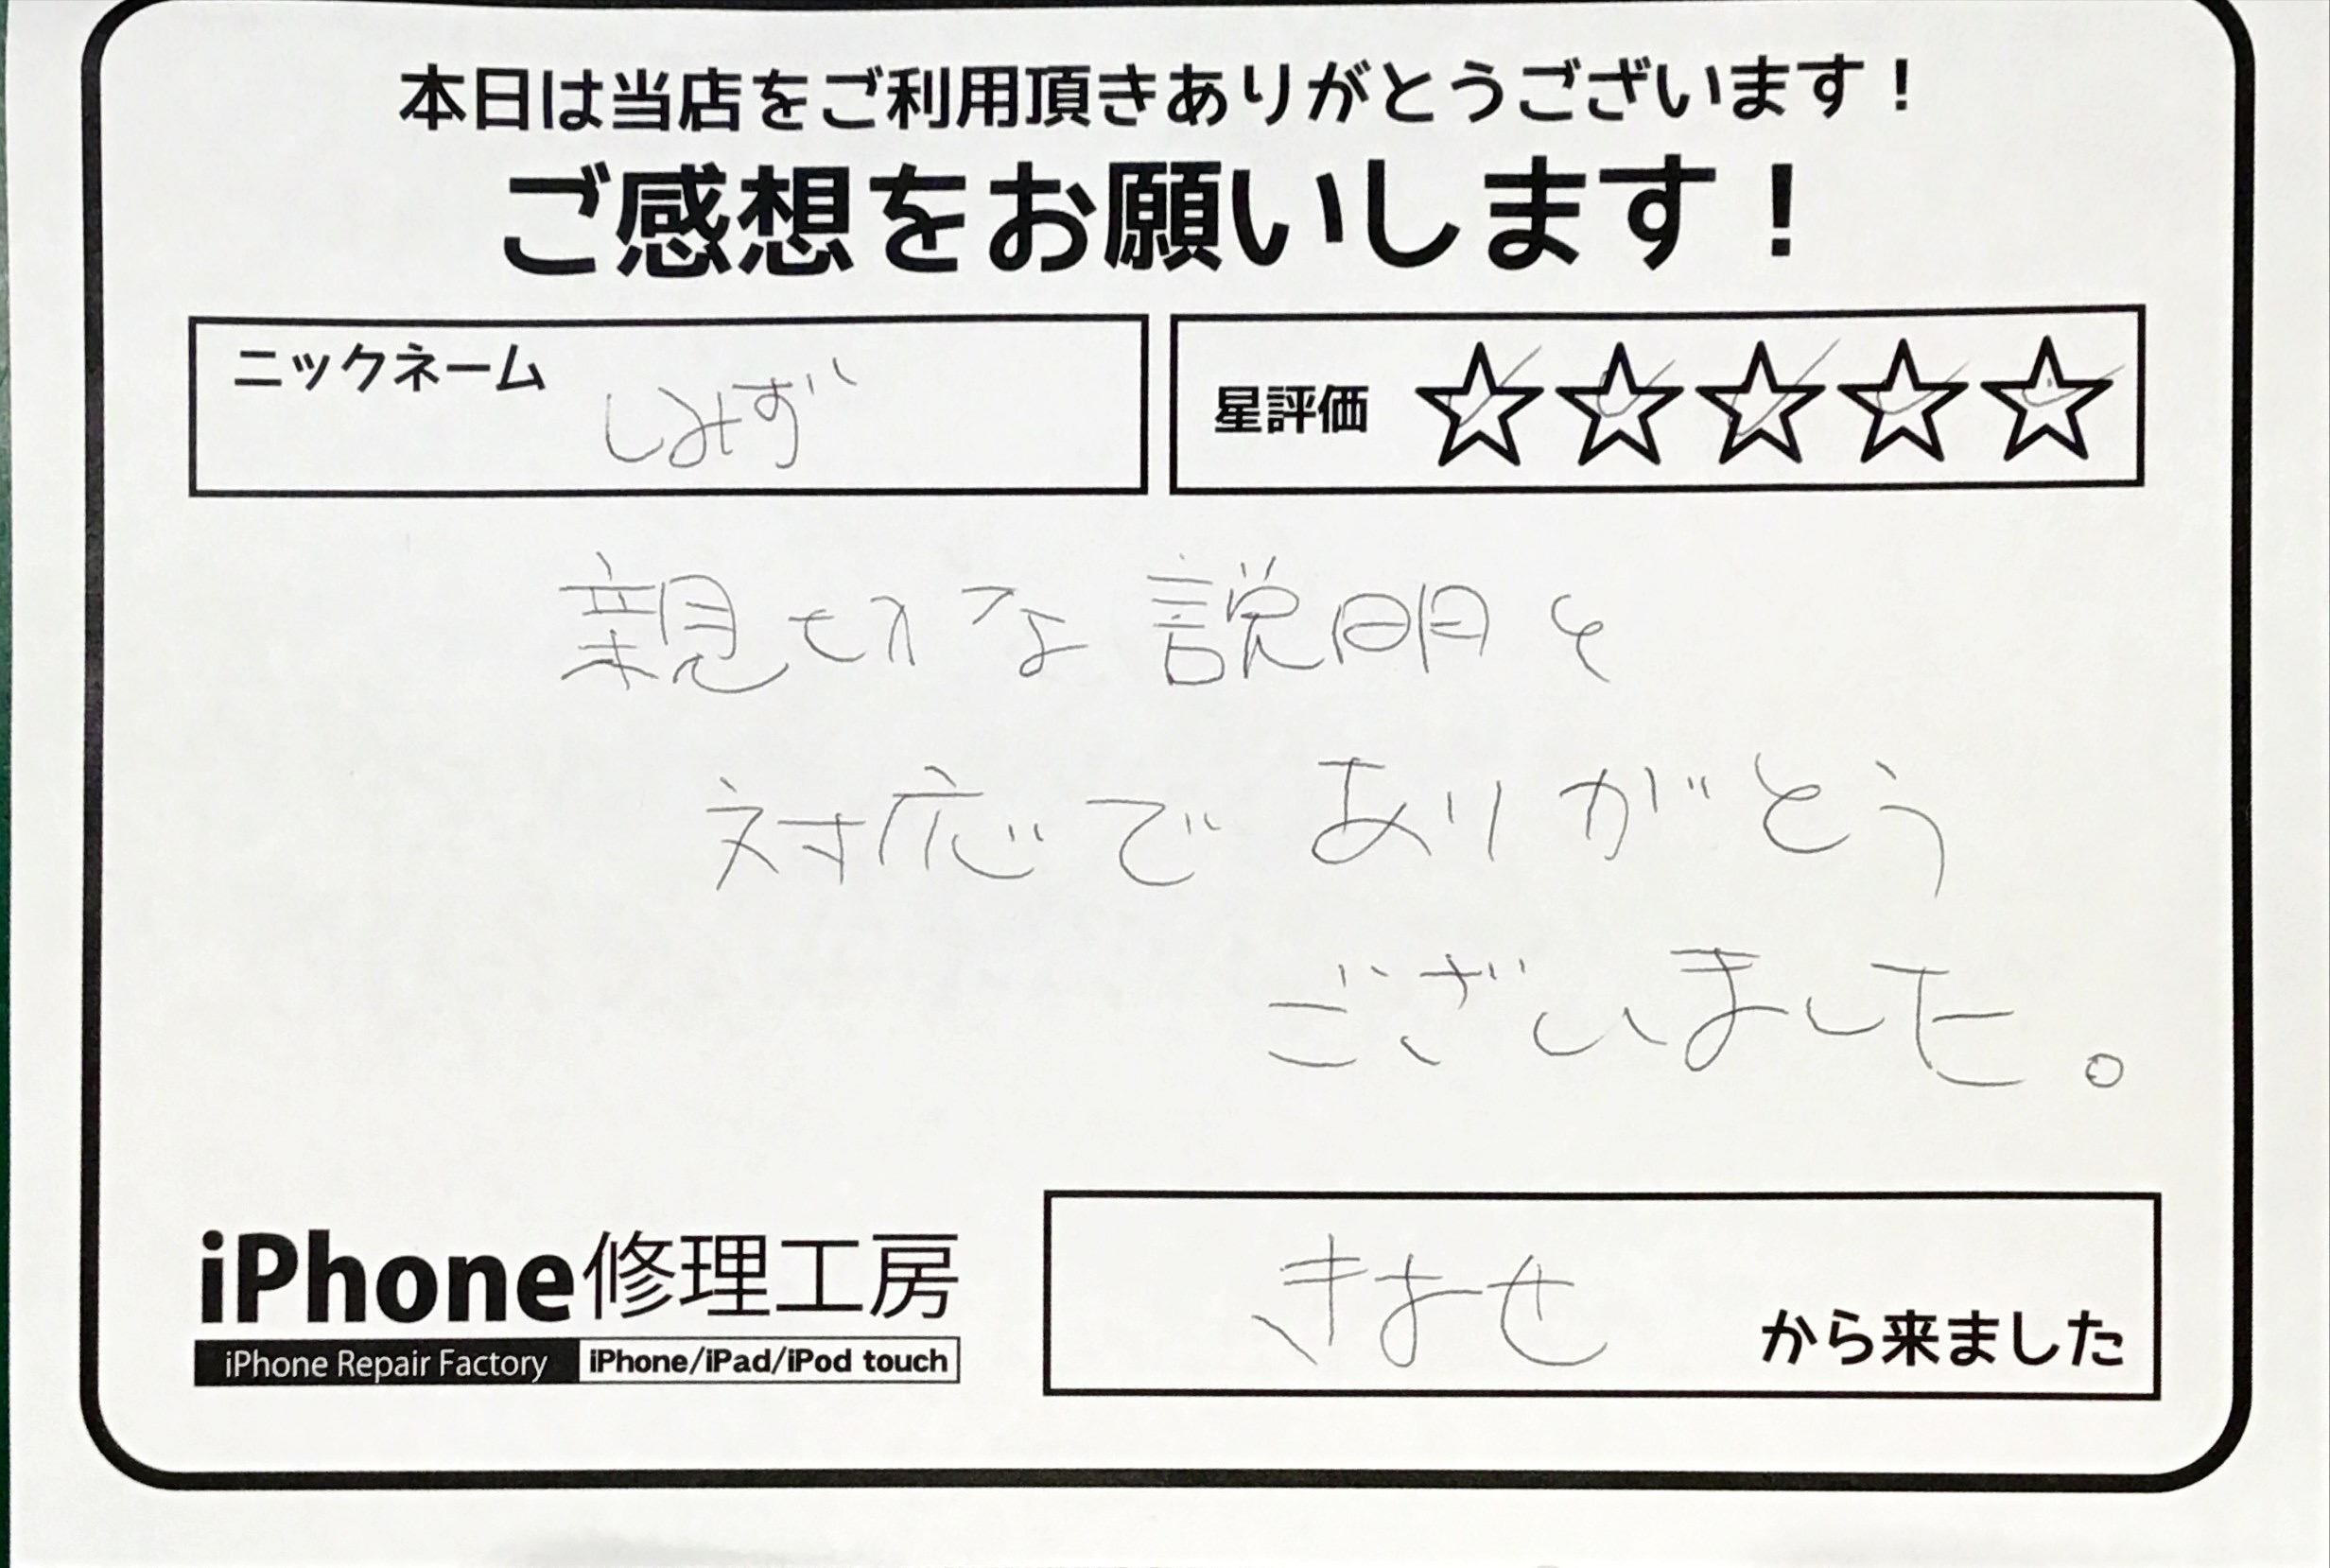 本日は当店をご利用頂きありがとうございます！
ご感想をお願いします！
ニックネーム しみず
星評価 ☆☆☆☆☆
親切な説明と
対応でありがとう
ございました。
iPhone修理工房
iPhone Repair Factory iPhone/iPad/iPod touch
から来ました